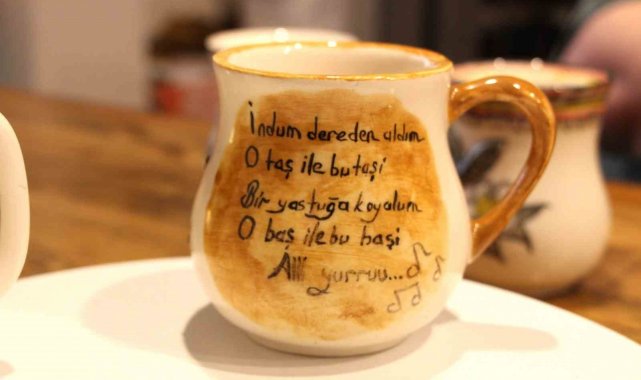 İndum dereden aldım
O taş ile bu taşi
Bir yastuğa koyalum
O baş ile bu başi
Alll yurruu...